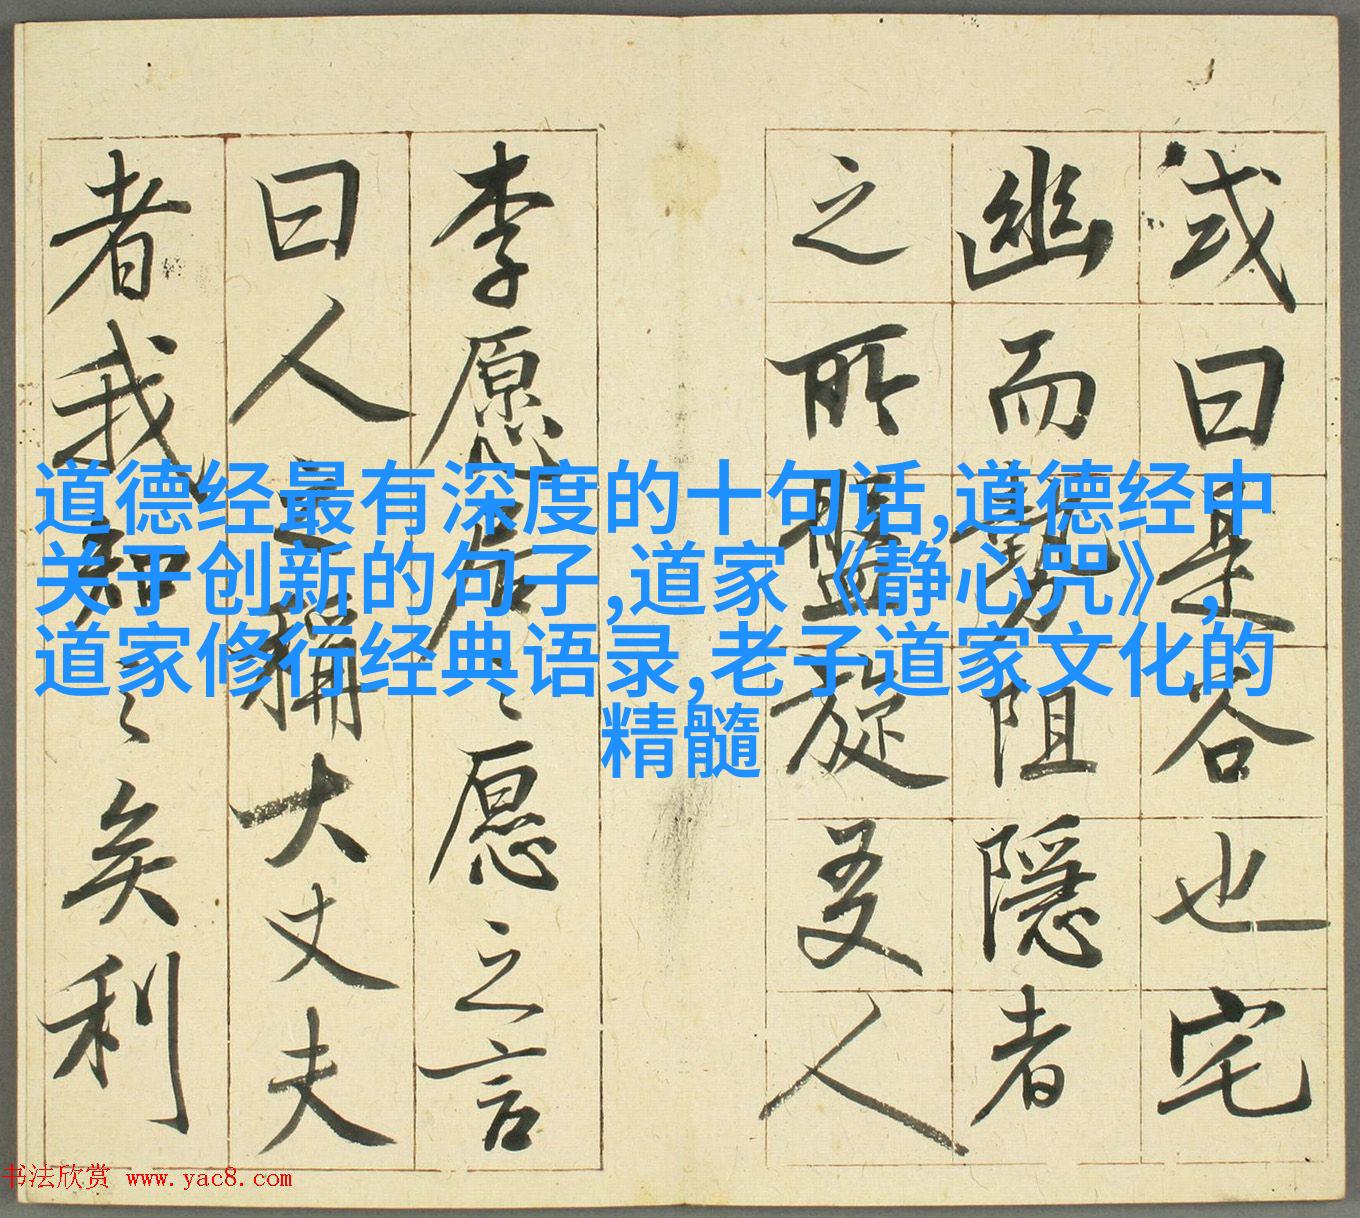 或曰是谷也宅
幽而勢阻隱者
之所盤旋友人
李愿居之愿之言
曰人之稱大丈夫
者我知之矣利
道德经最有深度的十句话,道德经中
关于创新的句子,道家《静心咒》,
道家修行经典语录,老子道家文化的
精髓
书法欣赏 www.yac8.com